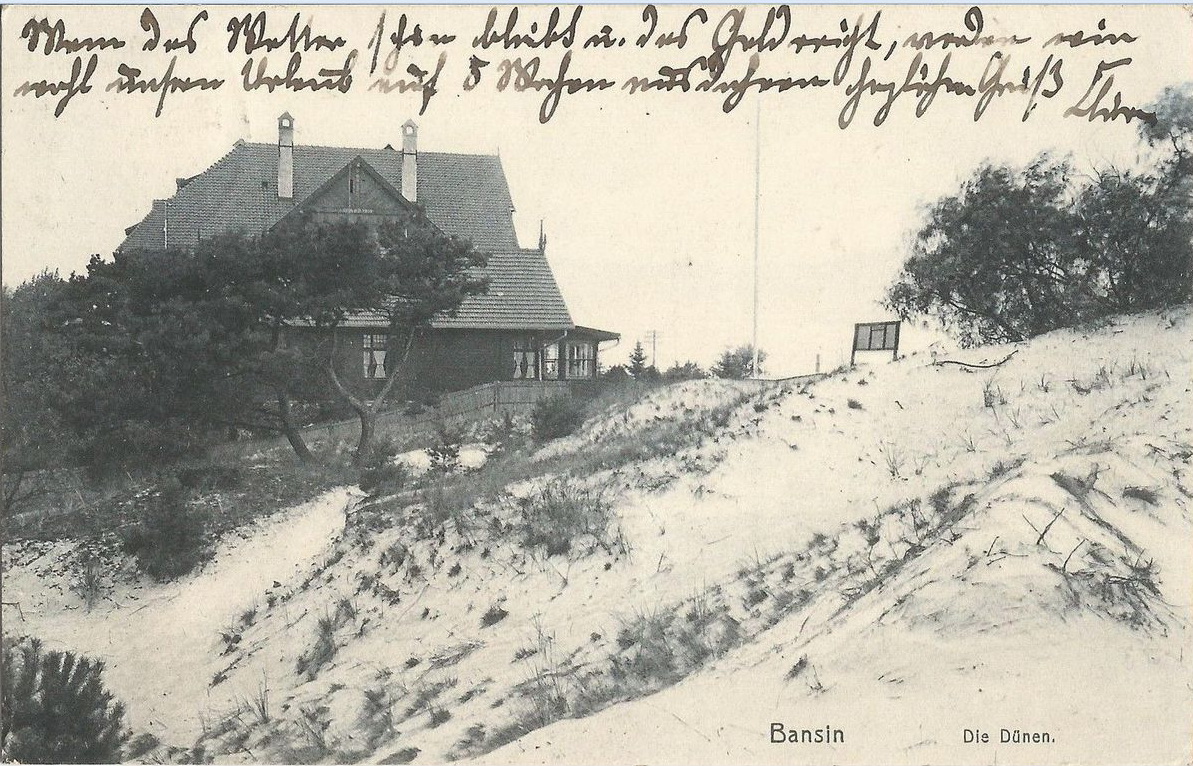 Wenn das Wetter schön bleibt u. das Geld reicht, werden wir
wohl unsern Urlaub auf 5 Wochen ausdehnen herzlichen Gruß
Bansin
Die Dünen.